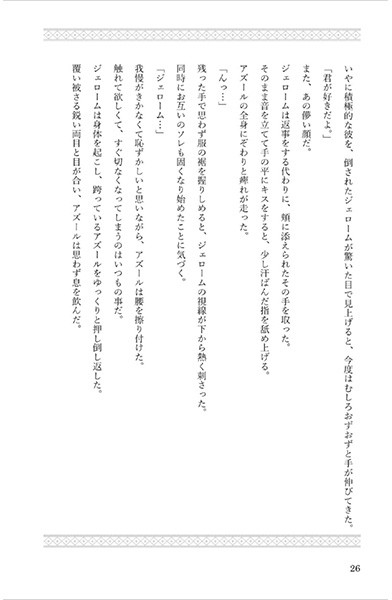 いやに積極的な彼を、倒されたジェロームが驚いた目で見上げると、今度はむしろおずおずと手が伸びてきた。
「君が好きだよ。」
また、あの儚い顔だ。
ジェロームは返事をする代わりに、頬に添えられたその手を取った。
そのまま音を立てて手の平にキスをすると、少し汗ばんだ指を舐め上げる。
アズールの全身にぞわりと痺れが走った。
「んっ…」
残った手で思わず服の裾を握りしめると、ジェロームの視線が下から熱く刺さった。
同時にお互いのソレも固くなり始めたことに気づく。
「ジェローム…」
我慢がきかなくて恥ずかしいと思いながら、アズールは腰を擦り付けた。
触れて欲しくて、すぐ切なくなってしまうのはいつもの事だ。
ジェロームは身体を起こし、跨っているアズールをゆっくりと押し倒し返した。
覆い被さる鋭い両目と目が合い、アズールは思わず息を飲んだ。
26